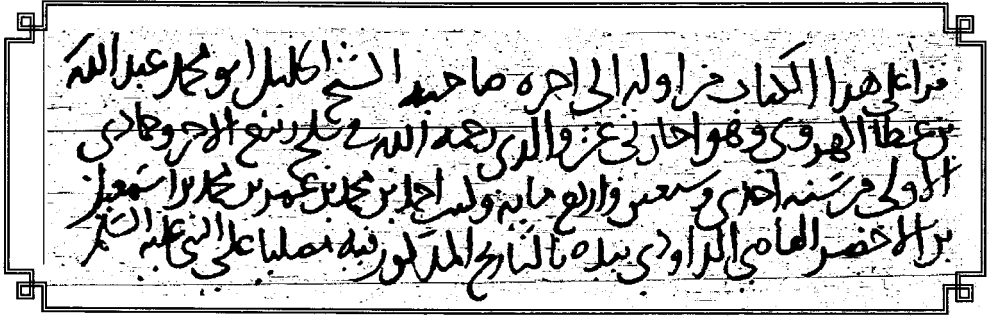 قرا علي هدا الكتاب من اوله الى اخره صاحبه الشيخ الجليل ابو محمد عبد الله
بن عطا الهروي وهو اجازني عن والدي رحمه الله في ربيع الاخر وجمادي
الاولى من سنه احدي وسبعين واربع مايه وكتب احمد بن محمد بن محمد بن اسمعيل
بن الاخضر القاضي الداودي بيده بالتاريخ المذكور فيه مصليا على النبي عليه السلم